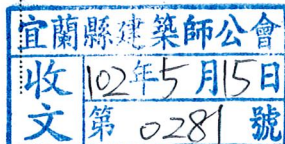 宜蘭縣建築師公會
收文
102年5月15日
第 0281 號